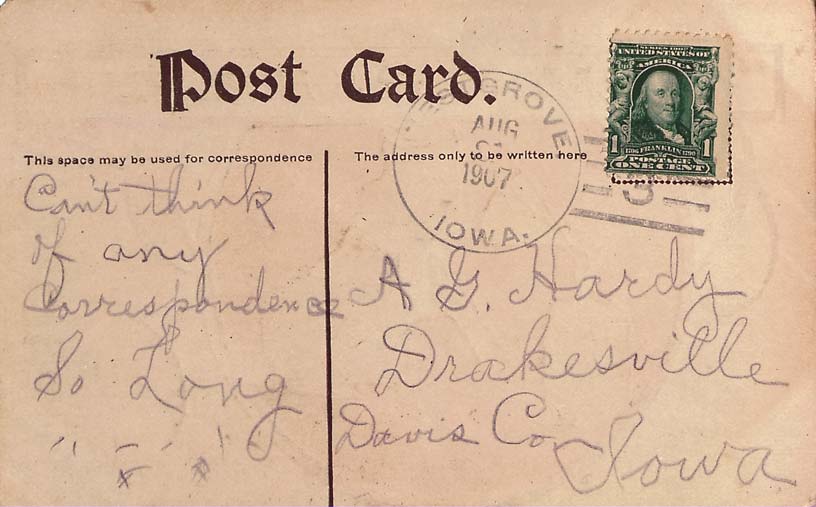 Post Card.
This space may be used for correspondence
The address only to be written here
Can't think
of any
Correspondence
So Long
A G. Hardy
Drakesville
Davis Co
Iowa
GROVE
AUG
1907
IOWA.
SERIES 1902
UNITED STATES OF
AMERICA
1706 FRANKLIN 1790
1 POSTAGE 1
ONE CENT
3